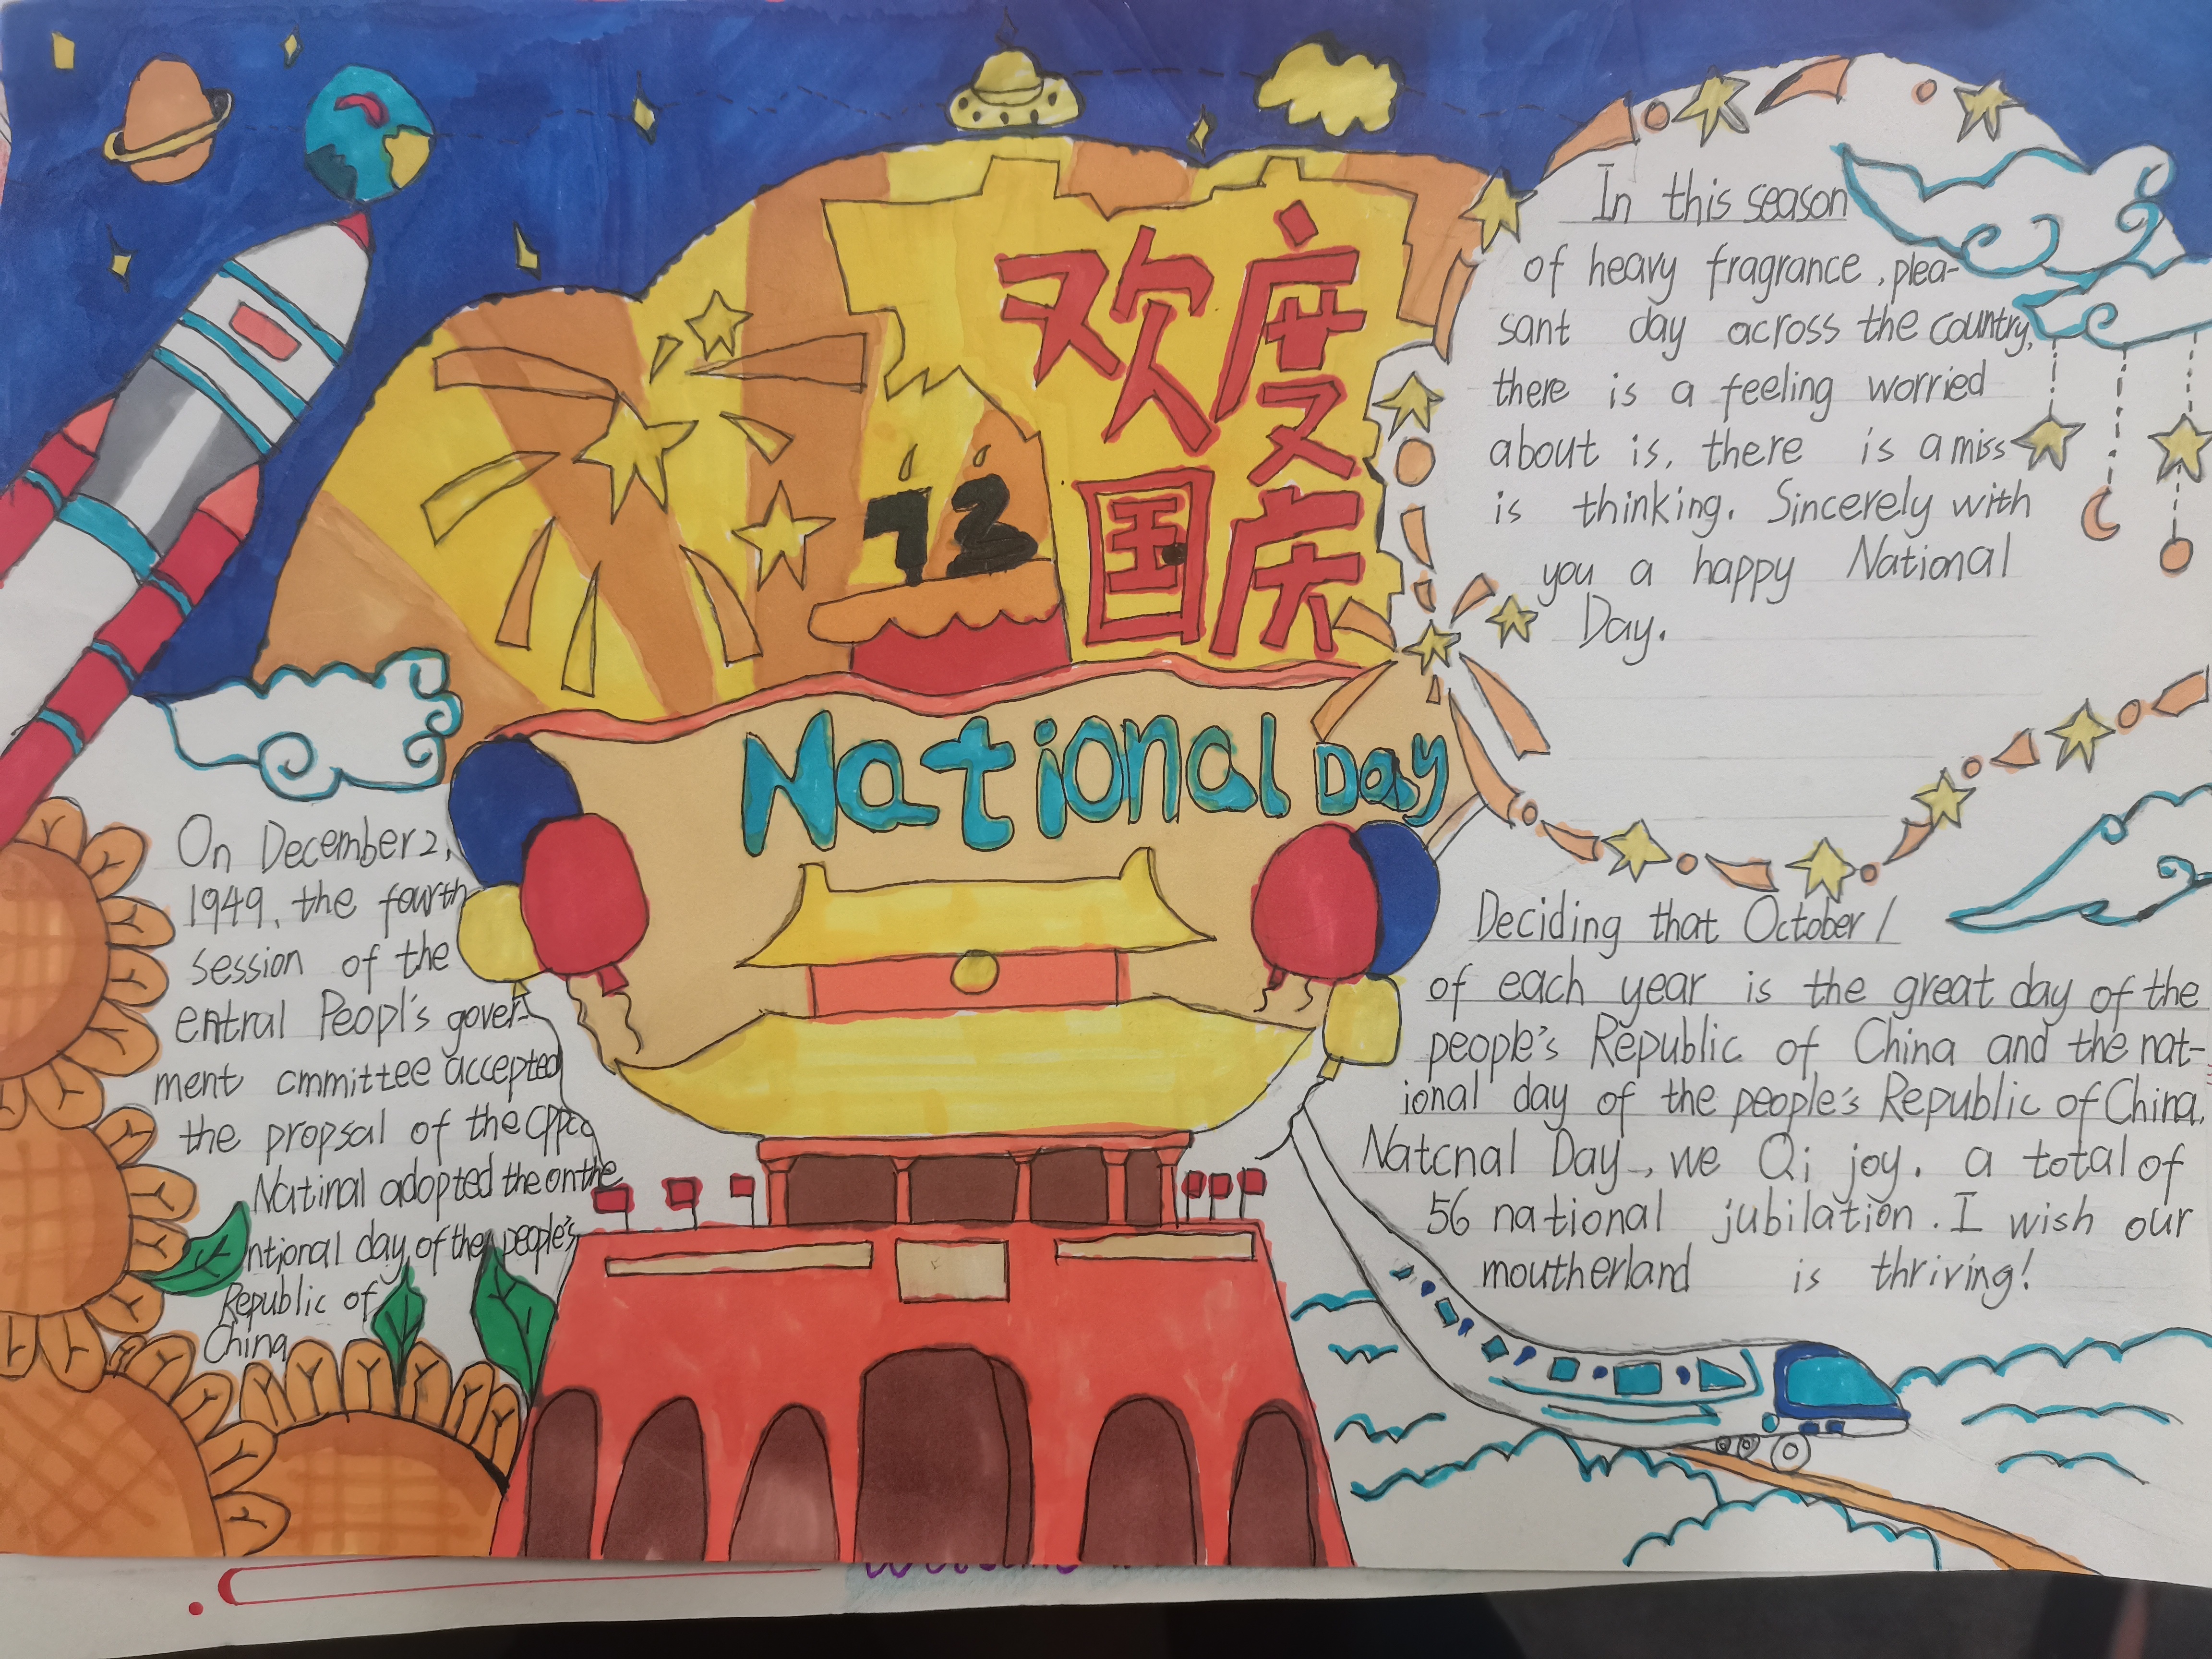 欢度
国庆
73
National Day
In this season
of heavy fragrance, plea-
sant day across the country,
there is a feeling worried
about is, there is a miss
is thinking. Sincerely with
you a happy National
Day.
On December 2,
1949, the fourth
session of the
entral Peopl's gover-
ment cmmittee accepted
the propsal of the cppcc
Natinal adopted the on the
ntional day of the people's
Republic of
China
Deciding that October 1
of each year is the great day of the
people's Republic of China and the nat-
ional day of the people's Republic of China.
Natcnal Day, we Qi joy. a total of
56 national jubilation. I wish our
moutherland is thriving!